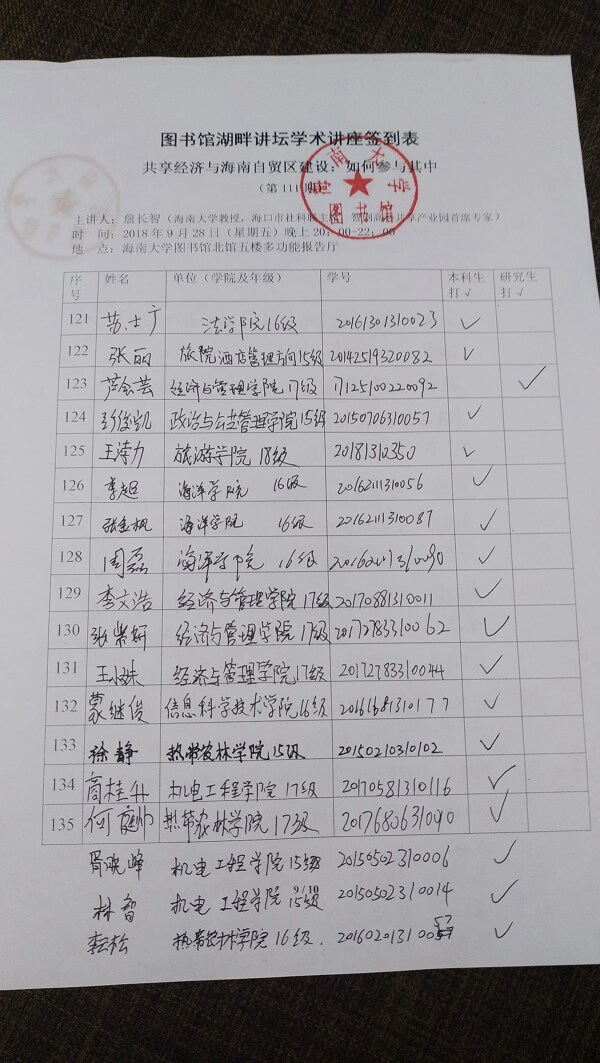 图书馆湖畔讲坛学术讲座签到表
共享经济与海南自贸区建设：如何参与其中
（第111期）
海南大学
图书馆
主讲人：詹长智（海南大学教授，海口市社科联主席，共享产业园首席专家）
时 间：2018年9月28日（星期五）晚上20：00-22：00
地 点：海南大学图书馆北馆五楼多功能报告厅
序号 姓名 单位（学院及年级） 学号 本科生打√ 研究生打√
121 苏士广 法学院16级 20161301310023 √
122 张丽 旅院酒店管理方向15级 20142519320082 √
123 芦会芸 经济与管理学院17级 17125100220092 √
124 彭俊凯 政治与公共管理学院15级 20150706310057 √
125 王涛力 旅游学院18级 20181310350 √
126 李超 海洋学院 16级 20162111310056 √
127 张金枫 海洋学院 16级 20162111310087 √
128 周磊 海洋学院 16级 √
129 李文浩 经济与管理学院17级 20170881310011 √
130 张紫妍 经济与管理学院17级 20172783310062 √
131 王小姝 经济与管理学院17级 20172783310044 √
132 蒙继俊 信息科学技术学院16级 20161681310177 √
133 徐静 热带农林学院15级 20150210310102 √
134 高桂升 机电工程学院17级 20170581310116 √
135 何庭帅 热带农林学院17级 20176806310090 √
胥晓峰 机电工程学院15级 20150502310006 √
林智 机电工程学院15级 9/10 20150502310014 √
李松 热带农林学院16级. 20160201310057 √